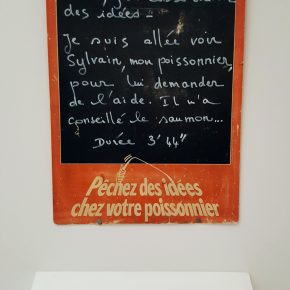 des idées.
Je suis allée voir
Sylvain, mon poissonnier,
pour lui demander
de l'aide. Il m'a
conseillé le saumon...
Durée 3'44"
Pêchez des idées
chez votre poissonnier